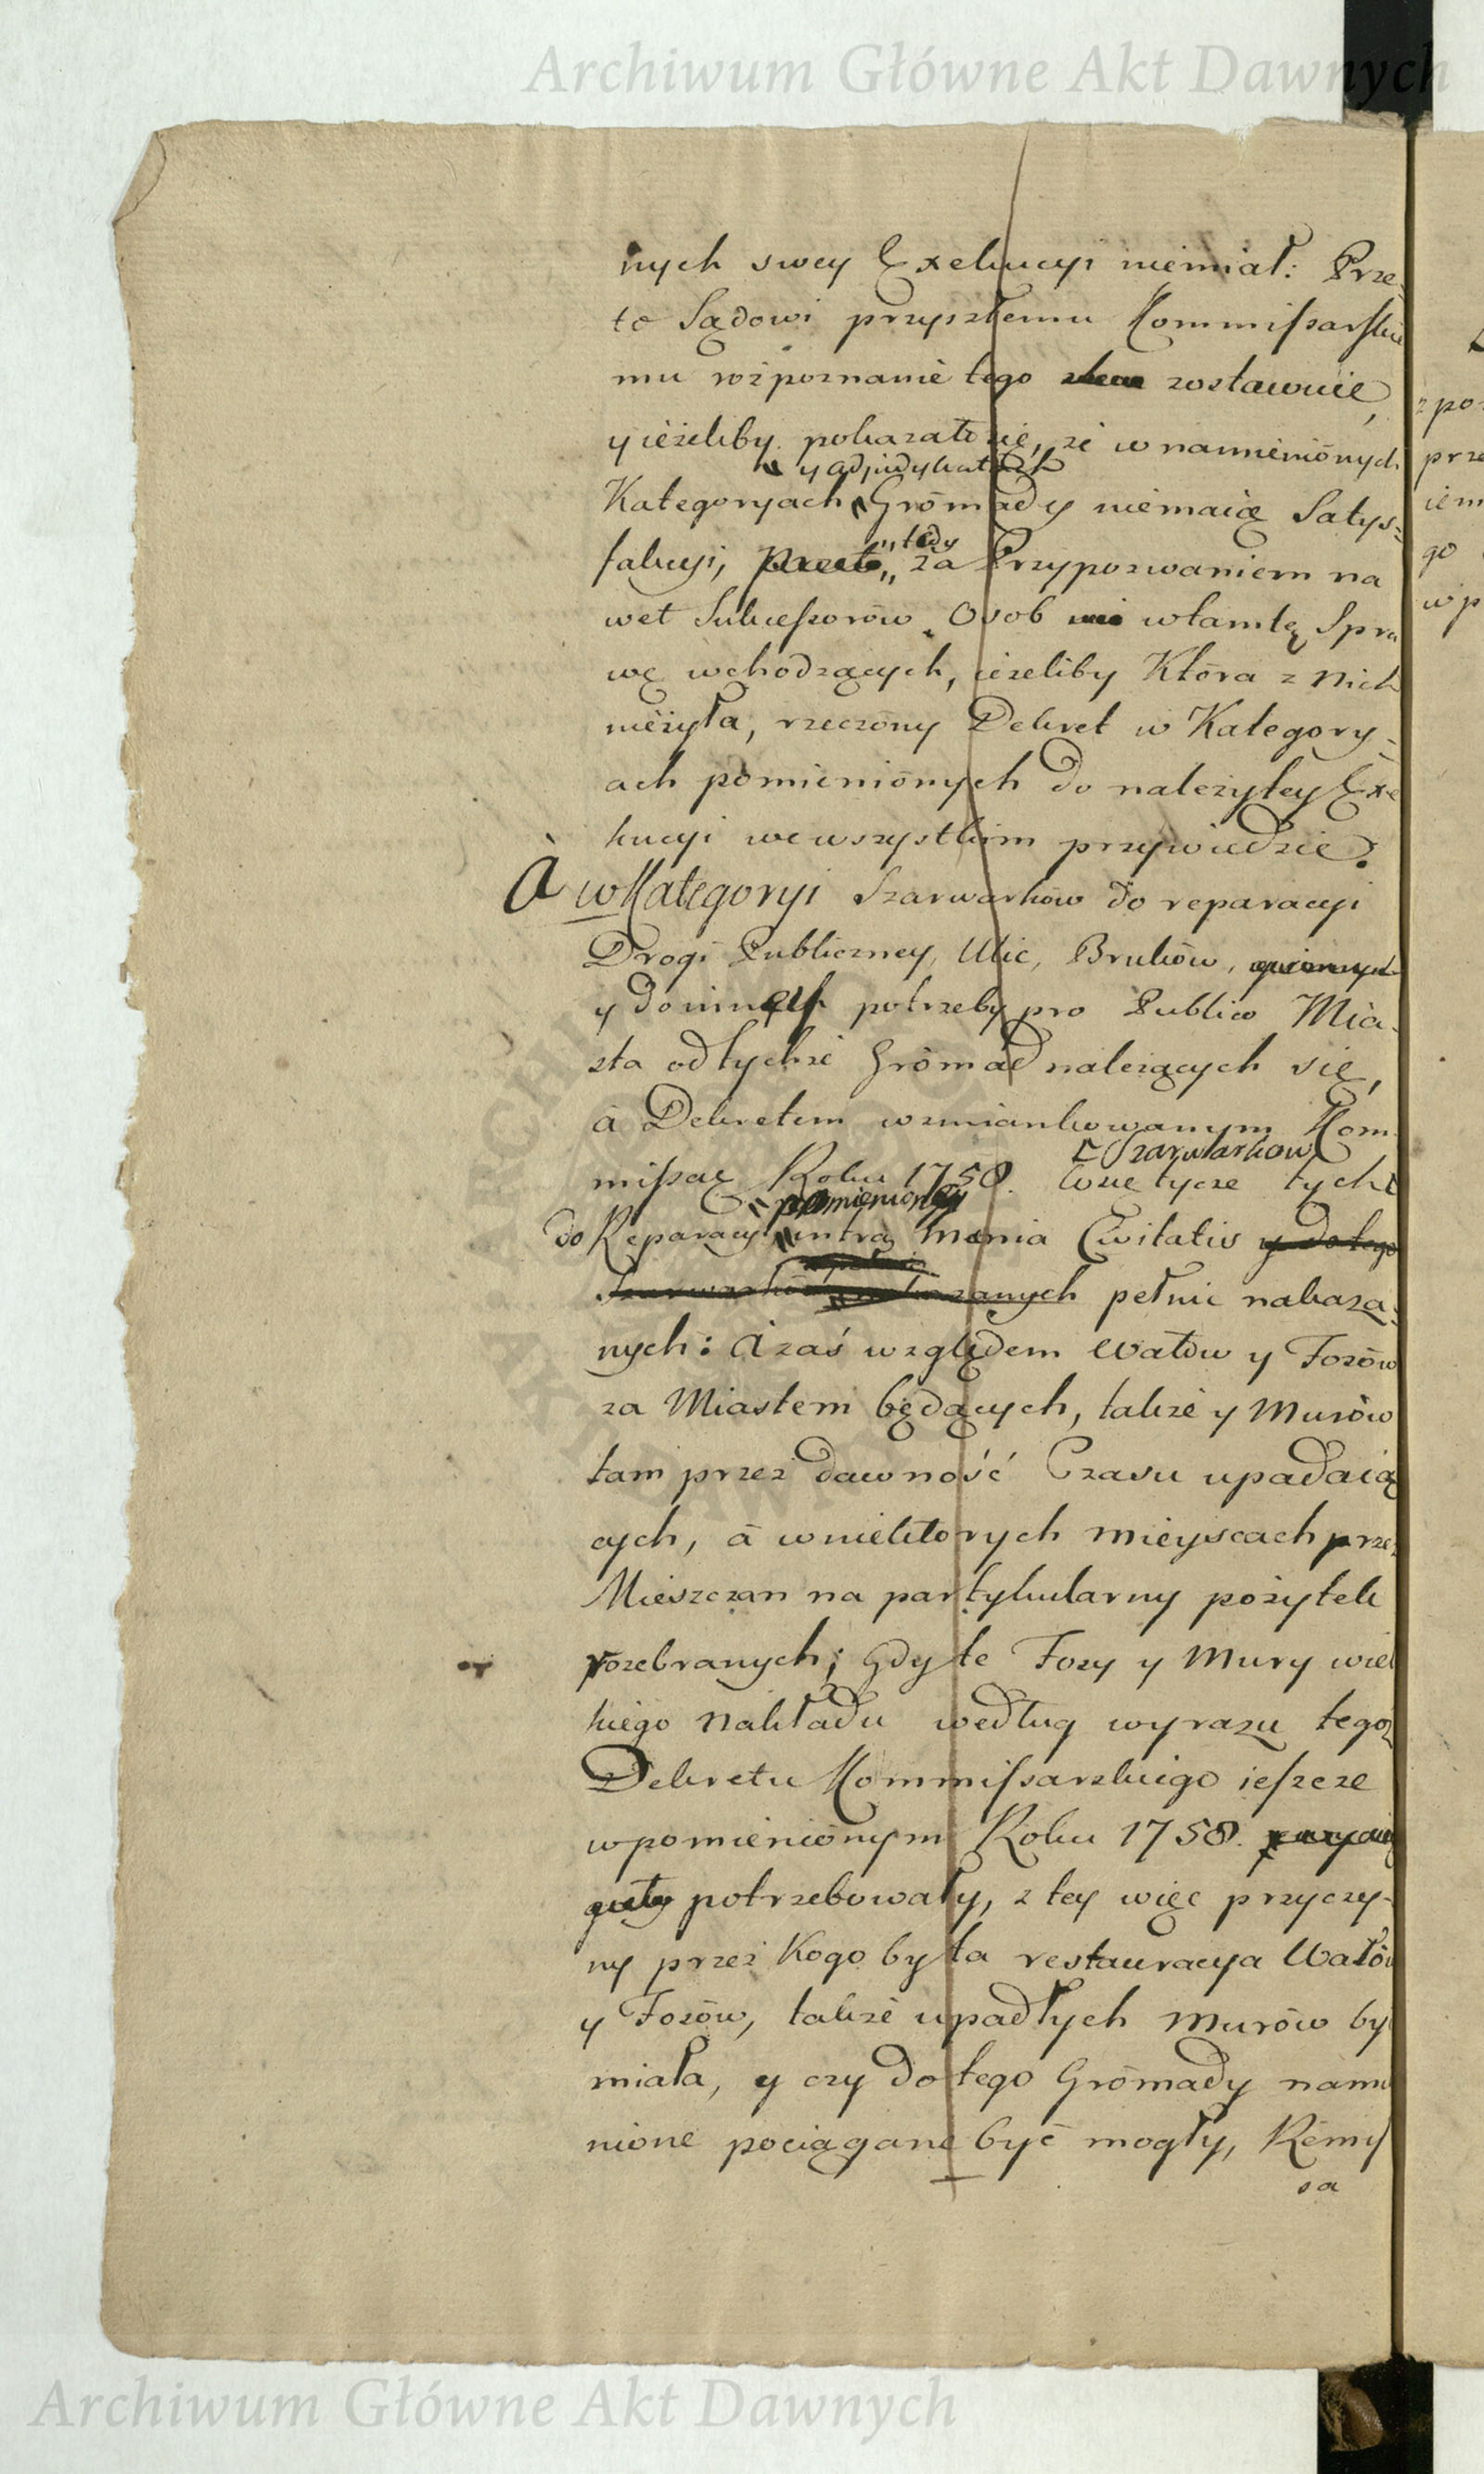 Archiwum Główne Akt Dawnych
nych swey Exekucyi niemiał: Prze-
to Sądowi przyszłemu Kommissarskie
mu rozpoznanie tego zostawuie,
y ieżeliby pokazało się, że w namienionych
y adjudykatach
Kategoryach Gromady niemaią Satys-
tedy
fakcyi, za Przypozwaniem na
wet Sukcessorów Osob w tamtę Spra
wę wchodzących, ieżeliby Która z Nich
nieżyła, rzeczony Dekret w Kategory-
ach pomienionych do należytey Exe
kucyi we wszystkim przywiedzie.
A w Kategoryi Szarwarków do reparacyi
Drogi Publiczney, Ulic, Bruków,
y do innych potrzeby pro Publico Mia-
sta od tychże Gromad należących się,
á Dekretem wzmiankowanym Kom
Szarwarkow
missae Roku 1758. tychż
pomienioney
do Reparacyi intra Maenia Civitatis y do tego
pełnić nakaza-
nych: A zaś względem Wałów y Fosów
za Miastem będących, także y Murów
tam przez dawność Czasu upadaią
cych, á w niektorych mieyscach prze
Mieszczan na partykularny pożytek
rozebranych; gdy te Fosy y Mury wiel
kiego Nakładu według wyrazu tegoż
Dekretu Kommissarskiego ieszcze
w pomienionym Roku 1758.
potrzebowały, z tey więc przyczy-
ny przez Kogo była restauracya Wałów
y Fosów, także upadłych Murów by
miała, y czy do tego Gromady nami
nione pociągane być mogły, Remis
sa
z po
prze
iem
go
w p
Archiwum Główne Akt Dawnych